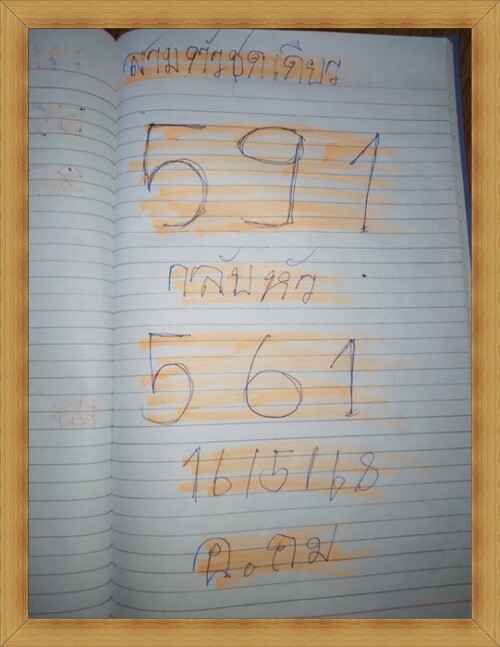 สามตัวชุดเดียว
591
กลับหัว
561
16/5/68
ฉ.ถม